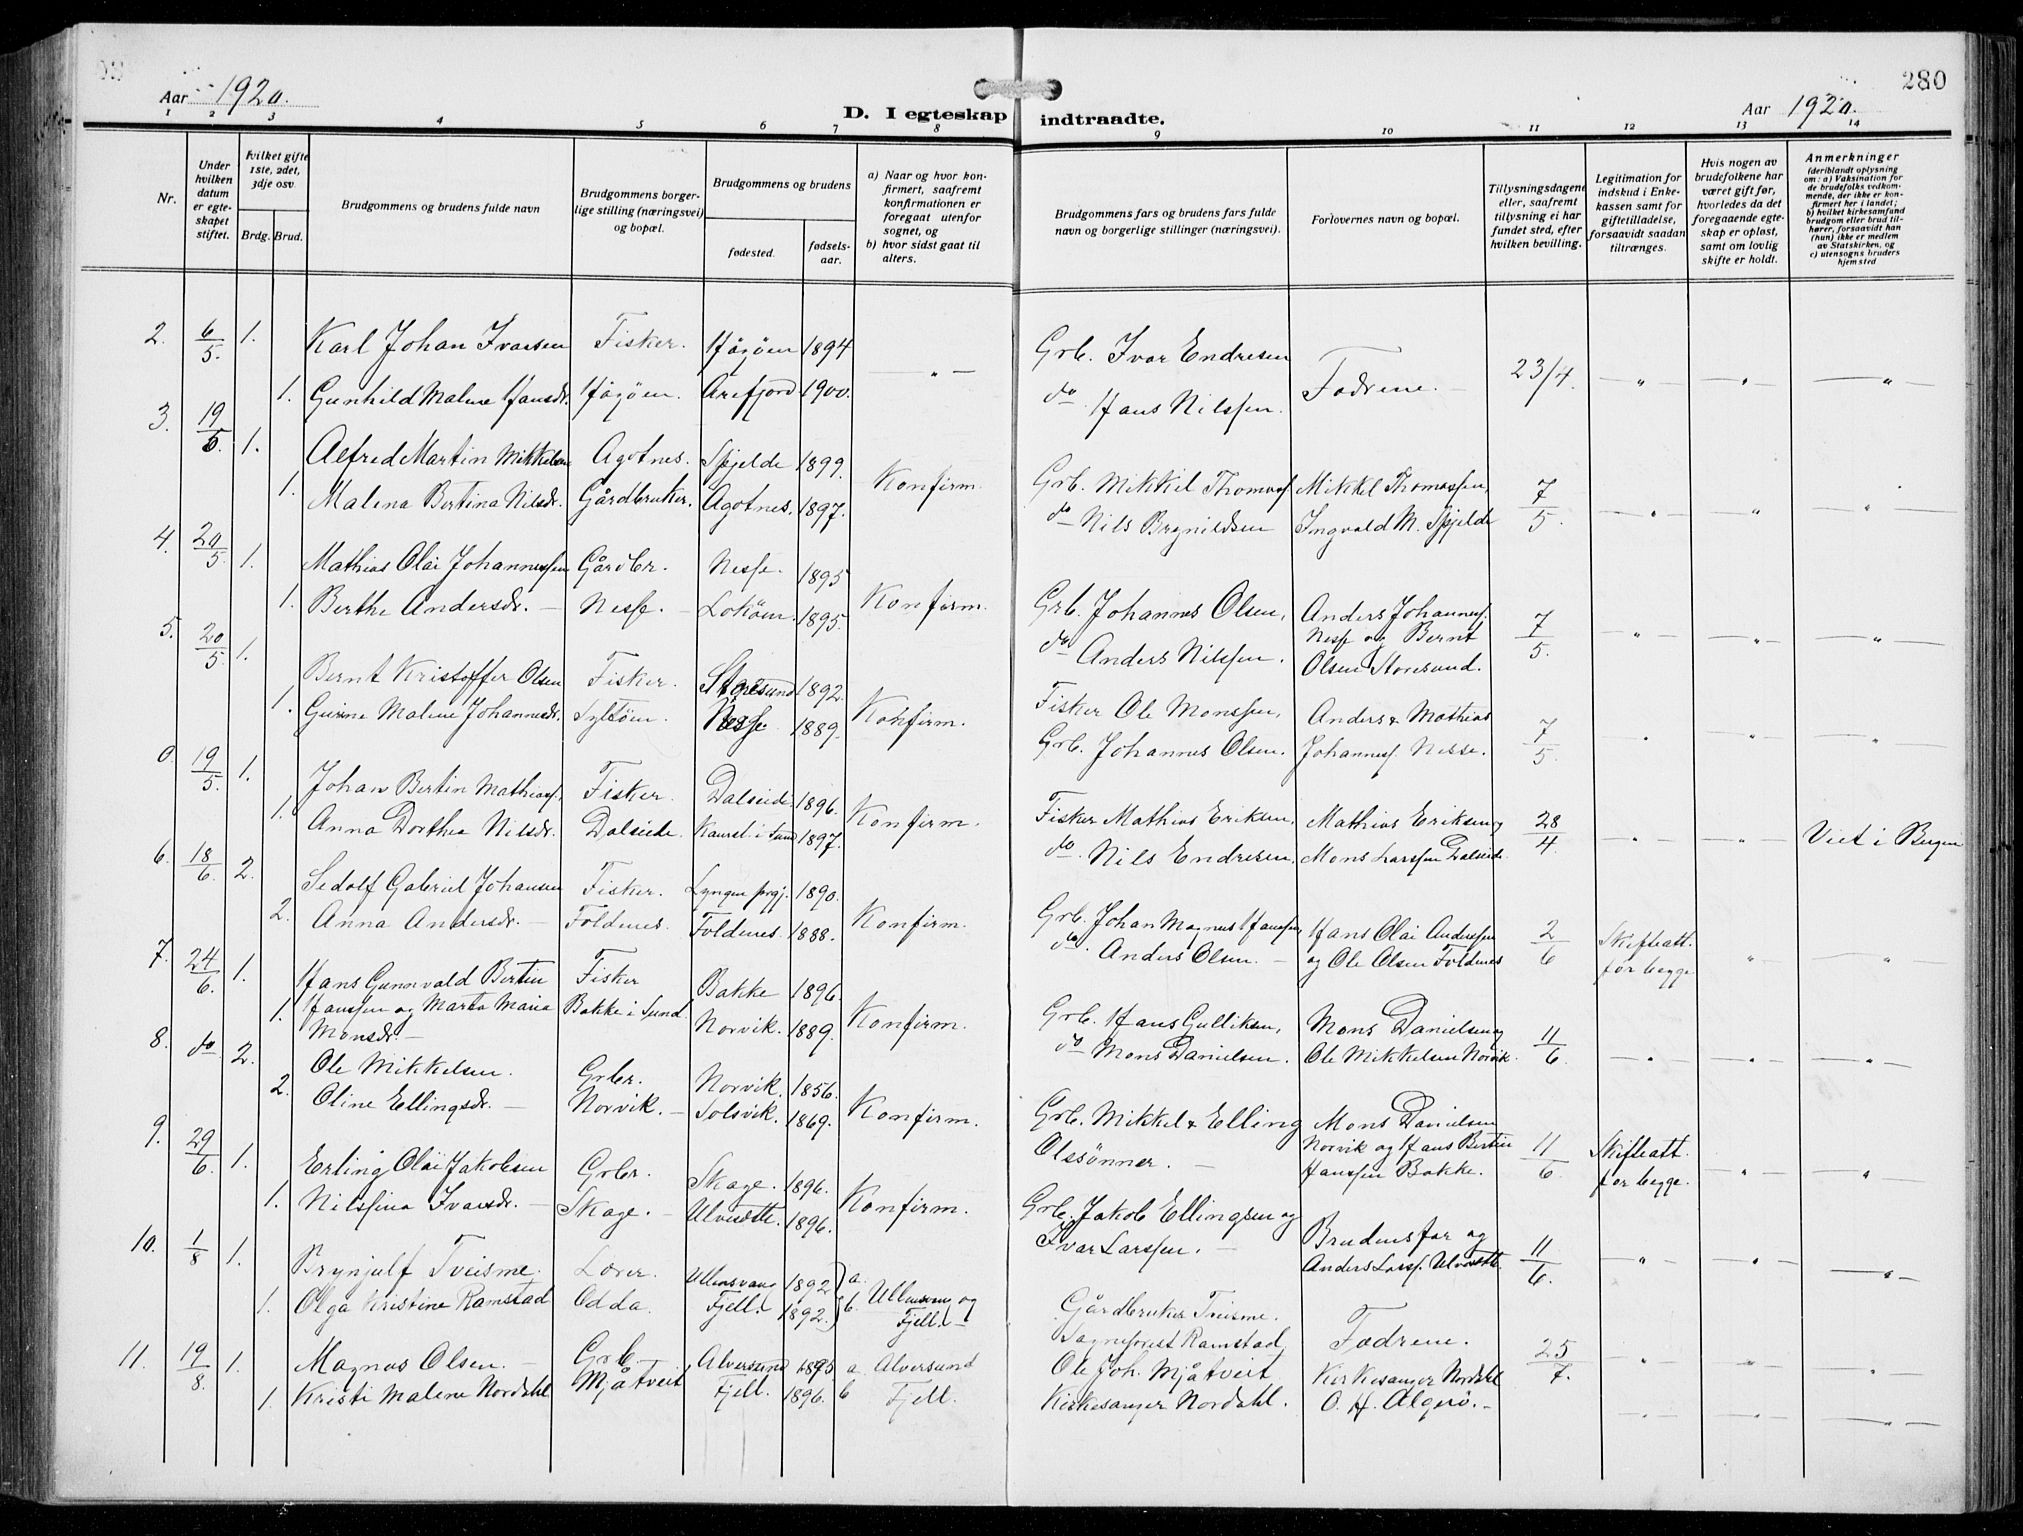 Aar 1920.
D. I egteskap indtraadte.
Aar 1920.
280
1 2 3 4 5 6 7 8 9 10 11 12 13 14
Nr.
Under hvilken datum er egteskapet stiftet.
hvilket gifte 1ste, 2det, 3dje osv.
Brdg. Brud.
Brudgommens og brudens fulde navn
Brudgommens borgerlige stilling (næringsvei) og bopæl.
Brudgommens og brudens
fødested.
fødselsaar.
a) Naar og hvor konfirmert, saafremt konfirmationen er foregaat utenfor sognet, og
b) hvor sidst gaat til alters.
Brudgommens fars og brudens fars fulde navn og borgerlige stillinger (næringsvei).
Forlovernes navn og bopæl.
Tillysningsdagene eller, saafremt tillysning ei har fundet sted, efter hvilken bevilling.
Legitimation for indskud i Enkekassen samt for giftetilladelse, forsaavidt saadan tiltrænges.
Hvis nogen av brudefolkene har været gift før, hvorledes da det foregaaende egteskap er opløst, samt om lovlig skifte er holdt.
Anmerkninger (deriblandt oplysning om: a) Vaksination for de brudefolks vedkommende, der ikke er konfirmert her i landet; b) hvilket kirkesamfund brudgom eller brud tilhører, forsaavidt han (hun) ikke er medlem av Statskirken, og c) utensogns bruders hjemsted
2. 6/5. 1. Karl Johan Ivarsen Fisker. Høgöen 1894 — " — Grb. Ivar Endresen Fædrene. 23/4. — " — — " — — " —
1. Gunhild Malene Hansdr. Høgöen. Arefjord 1900. do Hans Nilssen.
3. 19/5. 1. Alfred Martin Mikkelsen Agotnes. Spjelde 1899. Konfirm. Grb. Mikkel Thomass Mikkel Thomassen, 7/5. — " — " "
1. Malena Bertina Nilsdr. Gårdbruker. Agotnes. 1897. do Nils Brynildsen Ingvald M. Spjelde
4. 20/5 1. Mathias Olai Johannessen Gårdbr. Nesse. 1895 Konfirm. Grb. Johannes Olsen, Anders Johanness. 7/5. — " — — " — — " —
1. Berthe Andersdr. — Nesse. — Loköen. 1895. do Anders Nilssen. Nesse og Bernt
Olsen Storesund.
5. 20/5 1. Bernt Kristoffer Olsen Fisker. Storesund 1892. Konfirm. Fisker Ole Monssen, Anders & Mathias 7/5. " — " — — " —
1. Gurine Malene Johannesdr. Syltöen. Nesse. 1889. Grb. Johannes Olsen. Johanness. Nesse.
0. 19/5. 1. Johan Bertin Mathiass. Fisker. Dalseide 1896. Konfirm. Fisker Mathias Eriksen, Mathias Eriksen og 28/4 — " — — " — Viet i Bergen
1. Anna Dorthea Nilsdr. Dalseide. i Sund 1897. do. Nils Endresen, Mons Larssen Dalseide
6. 18/6. 2. Sedolf Gabriel Johansen Fisker. Lyngen prgj. 1890. Konfirm. Grb. Johan Magnus Hanssen, Hans Olai Anderssen 2/6 Skifteatt. " — "
2. Anna Andersdr. — Foldenes. Foldenes. 1888. do. Anders Olsen. — og Ole Olsen Foldenes for begge
7. 24/6. 1. Hans Gunnvald Bertin Fisker Bakke 1896. Konfirm. Grb. Hans Gulliksen, Mons Danielsen og 11/6. — " — " — "
1. Hanssen og Marta Maria Bakke i Sund. Norvik. 1889. do Mons Danielsen. Ole Mikkelsen Norvik.
Monsdr. —
8. do 2. Ole Mikkelsen. Grbr. Norvik. 1856. Konfirm. Grb. Mikkel & Elling Mons Danielsen 11/6 Skifteatt. — " — " —
2. Oline Ellingsdr. — Norvik. — Solsvik. 1869. Olssönner. — Norvik og Hans Bertin for begge.
Hanssen Bakke.
9. 29/6. 1. Erling Olai Jakobsen Grbr. Skage. 1896. Konfirm. Grb. Jakob Ellingsen og Brudens far og 11/6. — " — — " — — " —
1. Nilssina Ivarsdr. — Skage. — Ulvesette. 1896. Ivar Larssen. — Anders Larss. Ulvesette
10. 1/8 1. Brynjulf Tveisme. Lærer. Ullensvang 1892 a. Ullensvang og Gårdbruker Tveisme. Fædrene. 25/7. " — " — "
1. Olga Kristine Ramstad Odda. Fjell. 1892. b. Fjell. — Sogneprest Ramstad
11. 19/8. 1. Magnus Olsen. — Grb. Alversund 1895 a. Alversund Ole Joh. Mjåtveit Kirkesanger Nordahl — " — — " — — " —
1. Kristi Malene Nordahl Mjåtveit Fjell. 1896. b Fjell. Kirkesanger Nordahl. O. H. Algerö. —